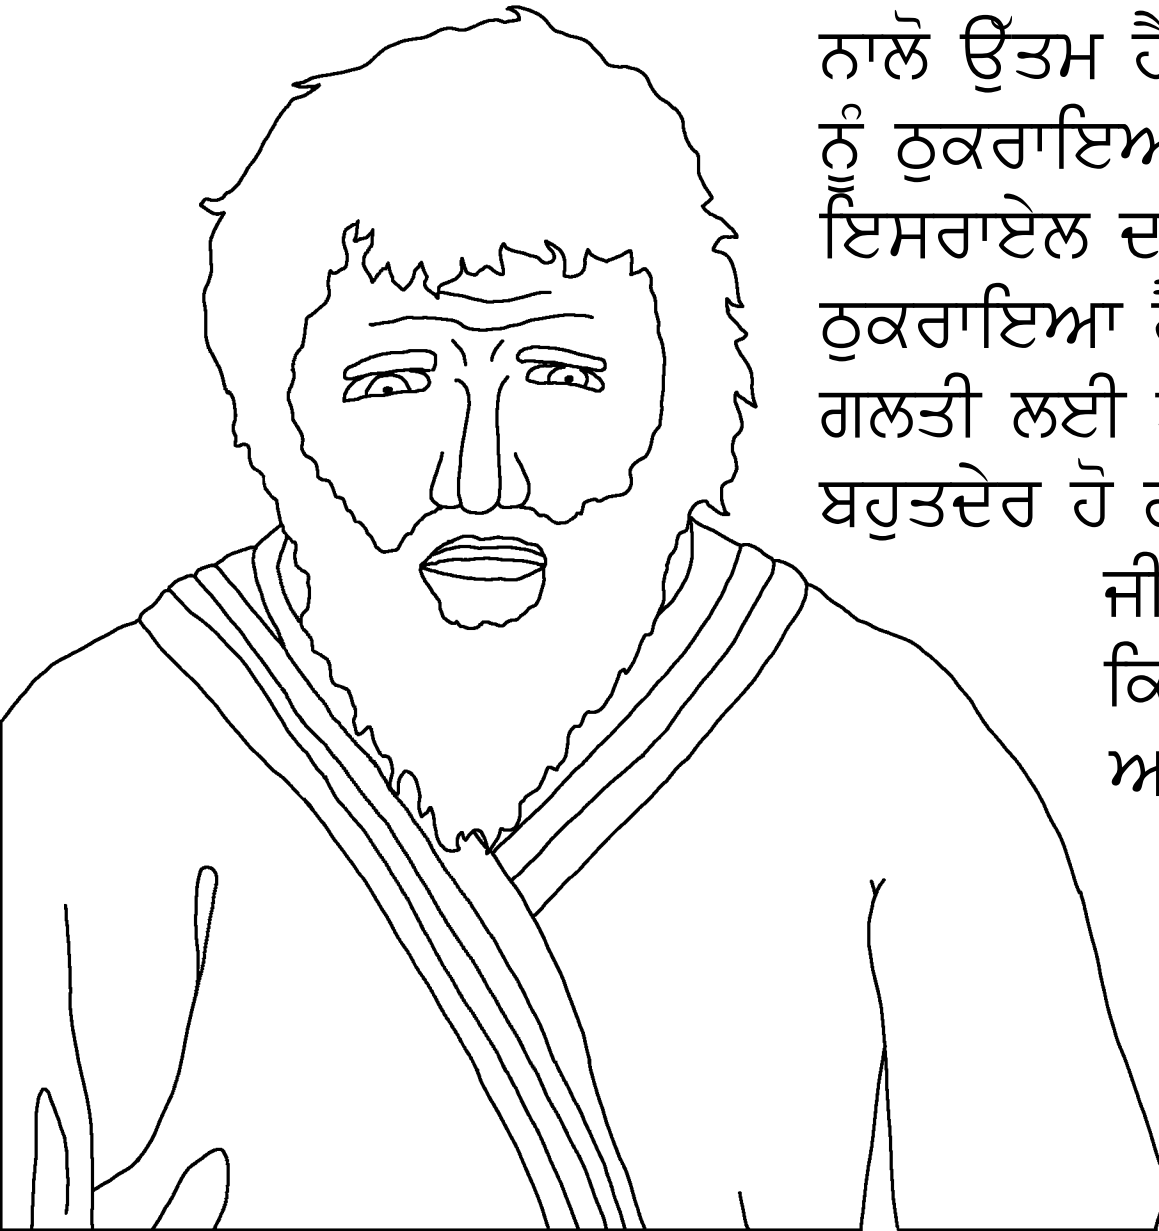 ਨਾਲੋ ਉੱਤਮ ਹੈ
ਨੂੰ ਠੁਕਰਾਇਅ
ਇਸਰਾਏਲ ਦ
ਠੁਕਰਾਇਆ
ਗਲਤੀ ਲਈ
ਬਹੁਤਦੇਰ ਹੋ
ਜੀ
ਕਿ
ਅ